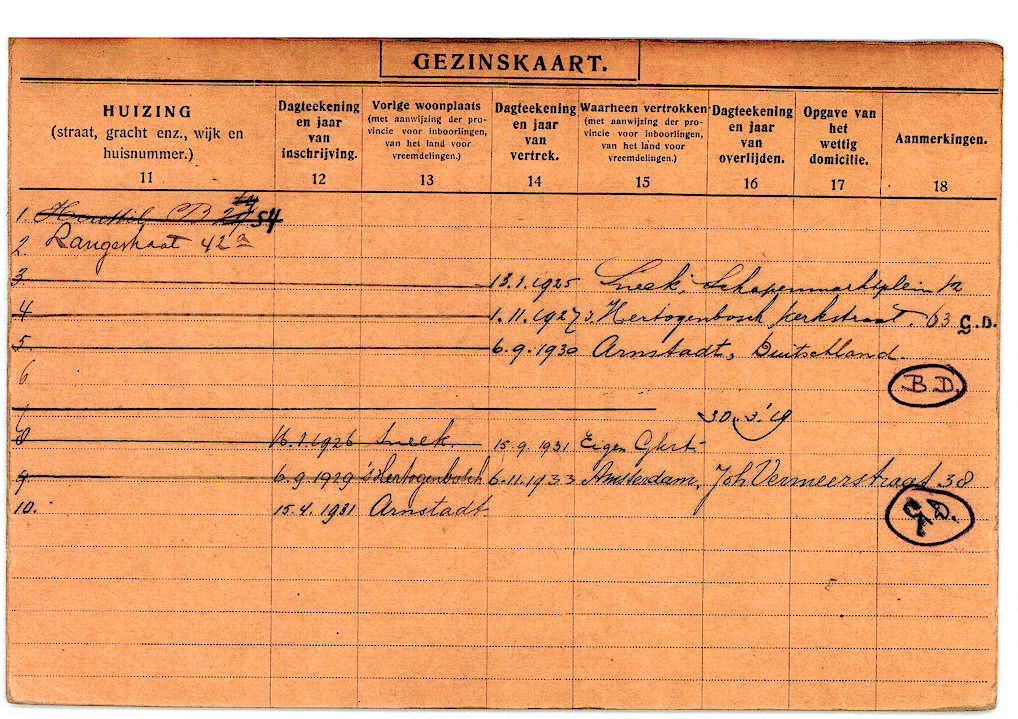 GEZINSKAART.
HUIZING
(straat, gracht enz., wijk en
huisnummer.)
11
Dagteekening
en jaar
van
inschrijving.
12
Vorige woonplaats
(met aanwijzing der pro-
vincie voor inboorlingen,
van het land voor
vreemdelingen.)
13
Dagteekening
en jaar
van
vertrek.
14
Waarheen vertrokken
(met aanwijzing der pro-
vincie voor inboorlingen,
van het land voor
vreemdelingen.)
15
Dagteekening
en jaar
van
overlijden.
16
Opgave van
het
wettig
domicilie.
17
Aanmerkingen.
18
1. CB 54
2. Langestraat 42a
3 13.1.1925 Sneek, Schapenmarktplein 12
4 1.11.1927 's Hertogenbosch Kerkstraat. 63 G.D.
5. 6.9.1930 Arnstadt, Duitschland.
6
B.D.
7 30.3.'19
8 16.1.1926 Sneek. 15.9.1931 Eigen Gkrt
9 6.9.1929 's Hertogenbosch 6.11.1933 Amsterdam, Joh Vermeerstraat 38
10. 15.4.1931 Arnstadt